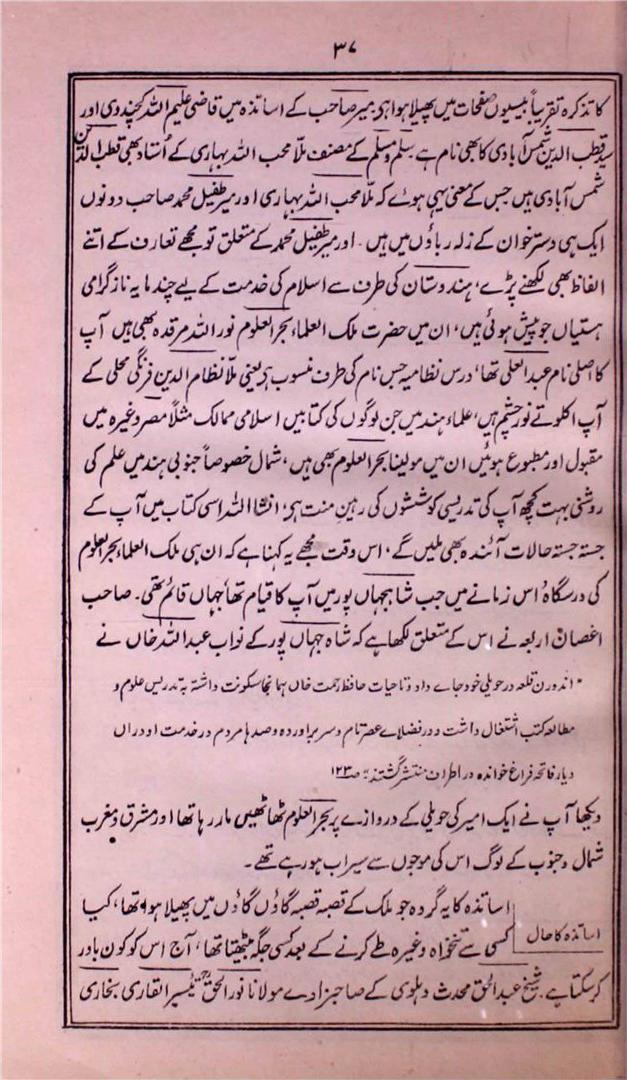 ۳۷
کا تذکرہ تقریباً بیسیوں صفحات میں پھیلا ہوا ہی، میر صاحب کے اساتذہ میں قاضی علیم اللہ کچندوی اور
سید قطب الدین شمس آبادی کا بھی نام ہے سلم و مسلم کے مصنف ملا محب اللہ بہاری کے اُستاد بھی قطب الدین
شمس آبادی ہیں جس کے معنی یہی ہوئے کہ ملا محب اللہ بہاری اور میر طفیل محمد صاحب دونوں
ایک ہی دسترخوان کے زلہ رباؤں میں ہیں۔ اور میر طفیل محمد کے متعلق تو مجھے تعارف کے اتنے
الفاظ بھی لکھنے پڑے، ہندوستان کی طرف سے اسلام کی خدمت کے لیے چند مایہ ناز گرامی
ہستیاں جو پیش ہوئی ہیں، ان میں حضرت ملک العلماء بحر العلوم نور اللہ مرقدہ بھی ہیں آپ
کا اصلی نام عبد العلی تھا، درس نظامیہ جس نام کی طرف منسوب ہی یعنی ملّا نظام الدین فرنگی محلی کے
آپ اکلوتے نور چشم ہیں، علماء ہند میں جن لوگوں کی کتابیں اسلامی ممالک مثلاً مصر وغیرہ میں
مقبول اور مطبوع ہوئیں ان میں مولینا بحر العلوم بھی ہیں، شمال خصوصاً جنوبی ہند میں علم کی
روشنی بہت کچھ آپ کی تدریسی کوششوں کی رہین منت ہی، انشا اللہ اسی کتاب میں آپ کے
جستہ جستہ حالات آئندہ بھی ملیں گے، اس وقت مجھے یہ کہنا ہے کہ ان ہی ملک العلماء بحر العلوم
کی درسگاہ اس زمانے میں جب شاہجہاں پور میں آپ کا قیام تھا جہاں قائم تھی۔ صاحب
اغصان اربعہ نے اس کے متعلق لکھا ہے کہ شاہ جہاں پور کے نواب عبد اللہ خاں نے
"اندورن قلعہ در حویلی خود جاے داد و تا حیات حافظ رحمت خاں ہمانجا سکونت داشتہ بہ تدریس علوم و
مطالعہ کتب اشتغال داشت و در فضلاے عصر نام و سر بر آوردہ و صدہا مردم در خدمت او دراں
دیار فاتحہ فراغ خواندہ در اطراف منتشر گشتند" ص ۱۲۳
دیکھا آپ نے ایک امیر کی حویلی کے دروازے پر بحر العلوم ٹھاٹھیں مار رہا تھا اور مشرق و مغرب
شمال و جنوب کے لوگ اس کی موجوں سے سیراب ہو رہے تھے۔
اساتذہ کا حال
اساتذہ کا یہ گروہ جو ملک کے قصبہ قصبہ گاؤں گاؤں میں پھیلا ہوا تھا، کیا
کسی سے تنخواہ وغیرہ طے کرنے کے بعد کسی جگہ بیٹھتا تھا، آج اس کو کون باور
کرسکتا ہے۔ شیخ عبد الحق محدث دہلوی کے صاحبزادے مولانا نور الحق تیسیر القاری بخاری